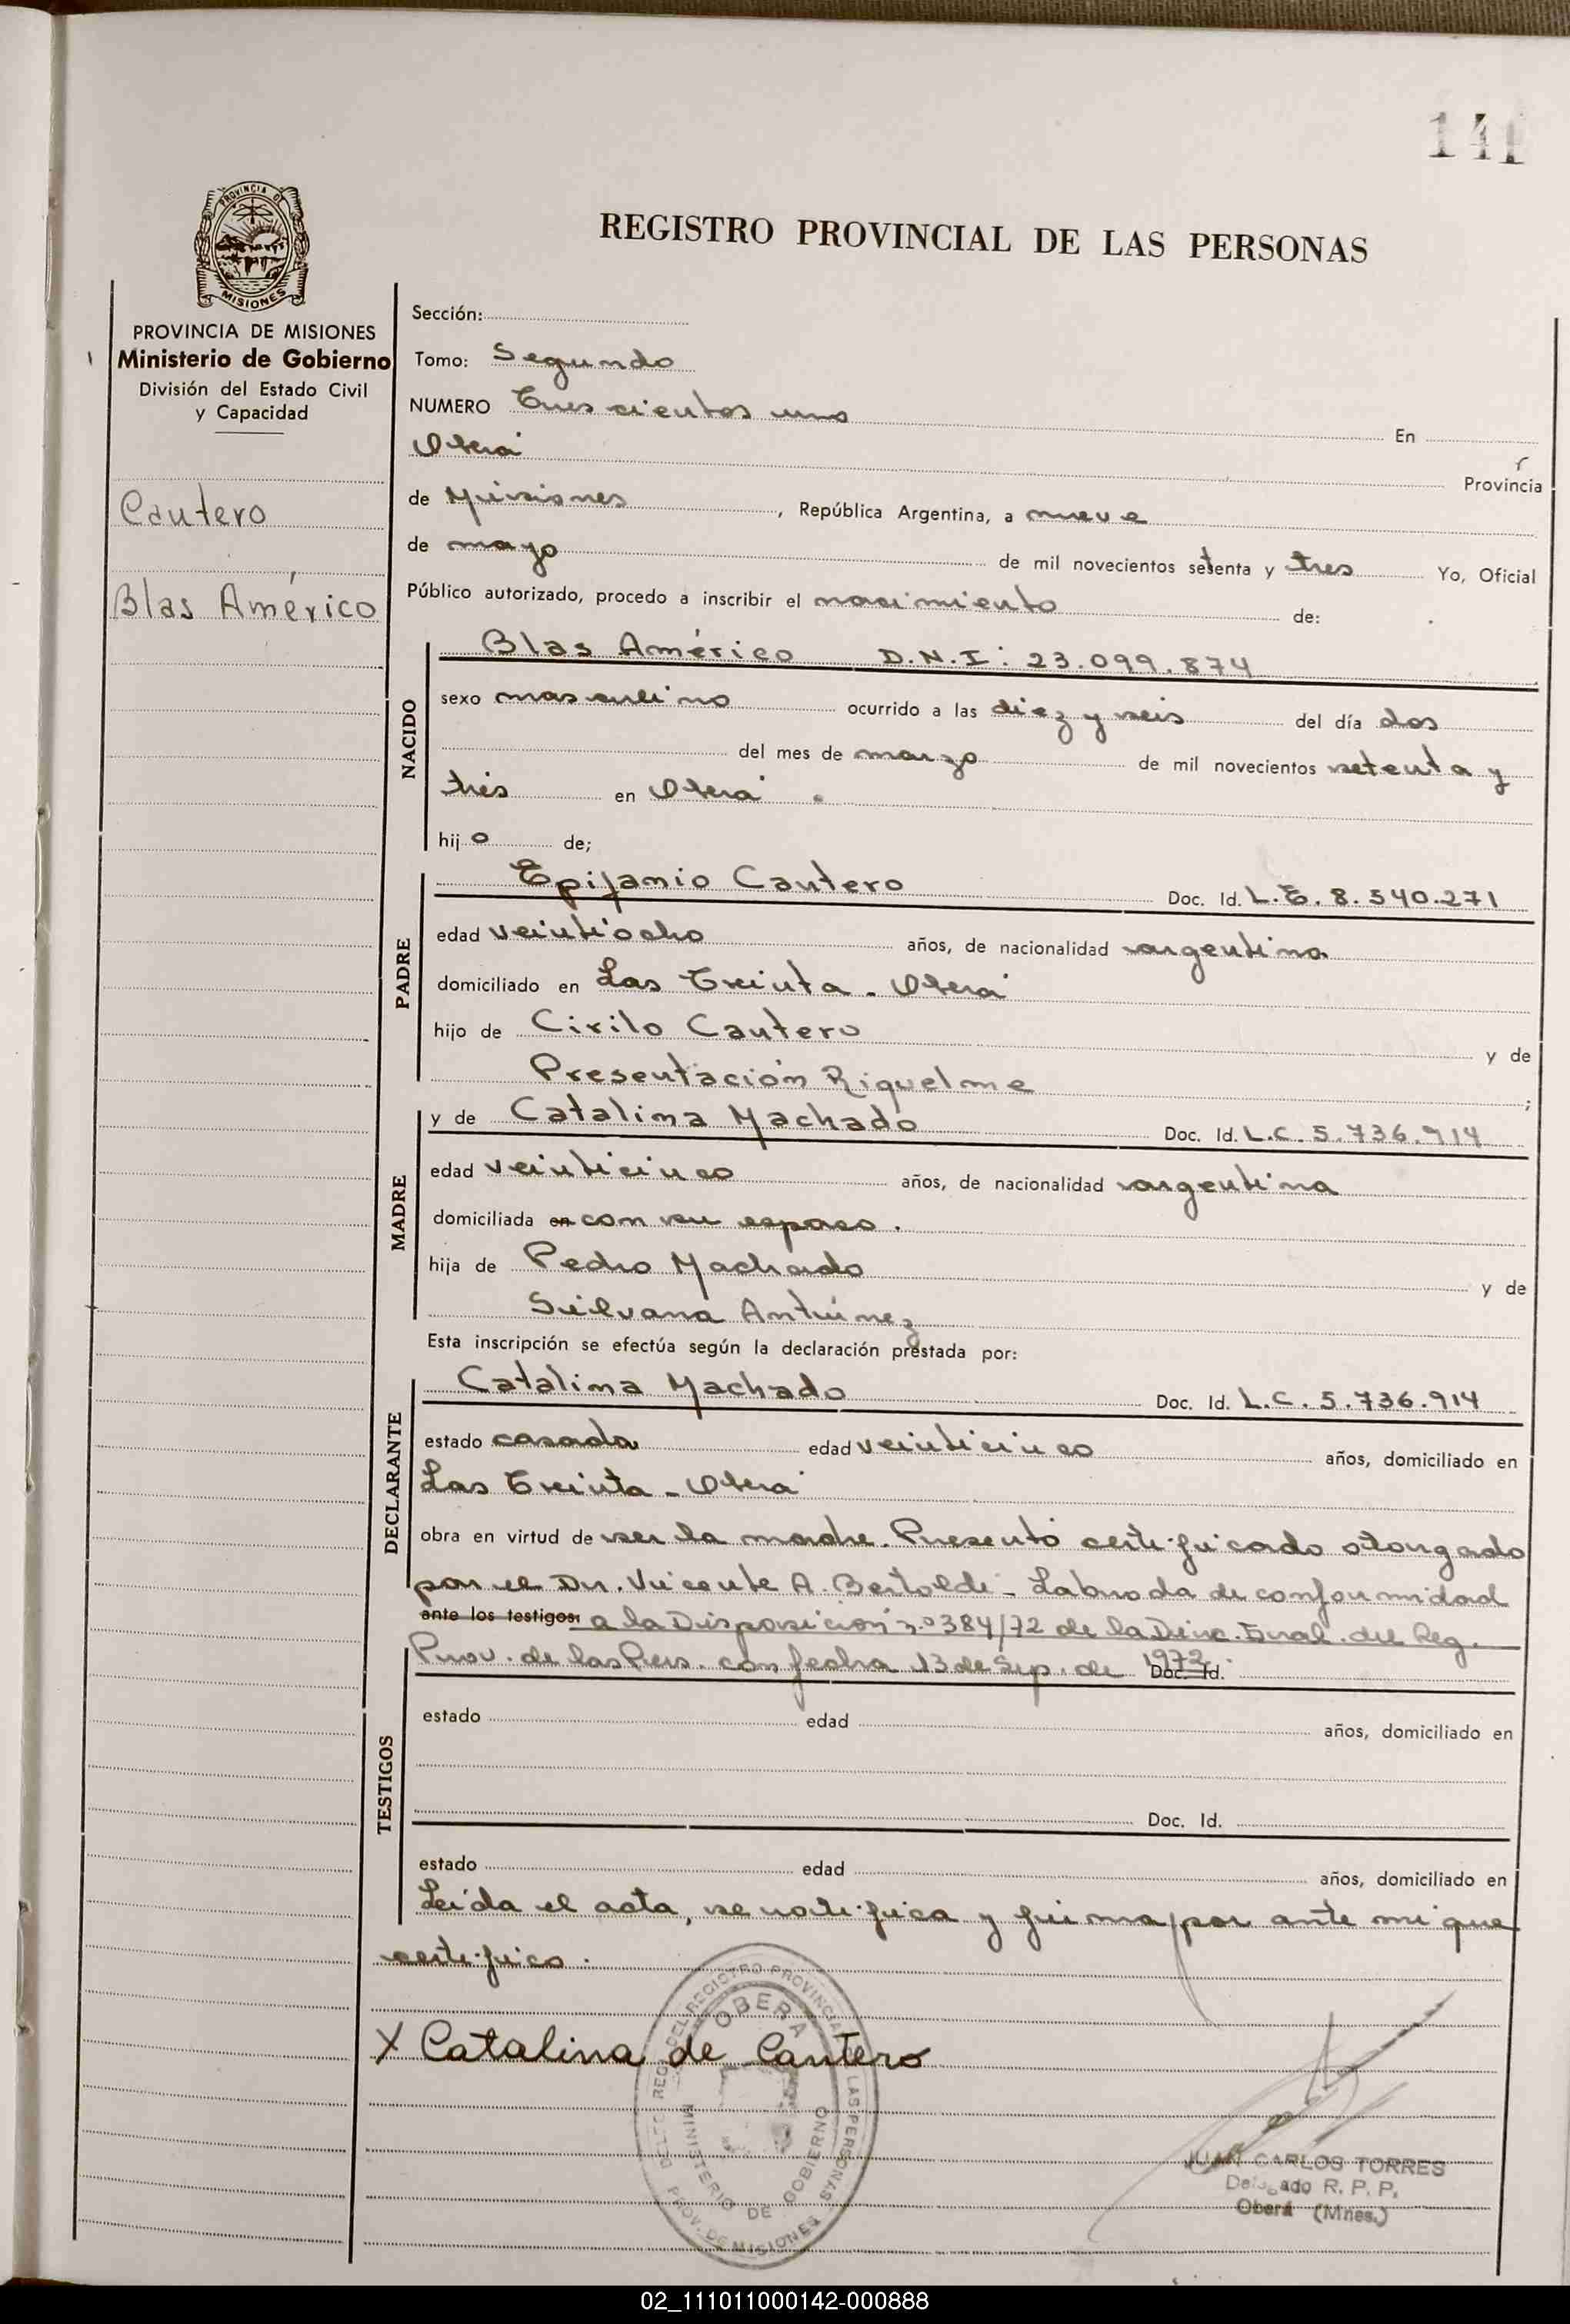 141
PROVINCIA DE
MISIONES
REGISTRO PROVINCIAL DE LAS PERSONAS
PROVINCIA DE MISIONES
Ministerio de Gobierno
División del Estado Civil
y Capacidad
Cantero
Blas Américo
Sección:
Tomo: Segundo
NUMERO Trescientos uno En
Oberá Provincia
de Misiones, República Argentina, a nueve
de mayo de mil novecientos setenta y tres Yo, Oficial
Público autorizado, procedo a inscribir el nacimiento de:
NACIDO
Blas Américo D.N.I: 23.099.874
sexo masculino ocurrido a las diez y seis del día dos
del mes de marzo de mil novecientos setenta y
tres en Oberá.
hijo de;
PADRE
Epifanio Cantero Doc. Id. L.E. 8.540.271
edad veintiocho años, de nacionalidad argentina
domiciliado en Las Treinta - Oberá
hijo de Cirilo Cantero y de
Presentación Riquelme;
MADRE
y de Catalina Machado Doc. Id. L.C. 5.736.914
edad veinticinco años, de nacionalidad argentina
domiciliada en con su esposo.
hija de Pedro Machado y de
Silvana Antúnez
Esta inscripción se efectúa según la declaración prestada por:
DECLARANTE
Catalina Machado Doc. Id. L.C. 5.736.914
estado casada edad veinticinco años, domiciliado en
Las Treinta - Oberá
obra en virtud de ser la madre. Presentó certificado otorgado
por el Dr. Vicente A. Bertoldi - Labrada de conformidad
ante los testigos: a la Disposición n.º 384/72 de la Direc. Gral. del Reg.
Prov. de las Pers. con fecha 13 de Sep. de 1972. Doc. Id.
TESTIGOS
estado edad años, domiciliado en
Doc. Id.
estado edad años, domiciliado en
Leída el acta, se notifica y firma por ante mi que
certifico.
X Catalina de Cantero
DEL REGISTRO PROVINCIAL LAS PERSONAS
OBERA
MINISTERIO DE GOBIERNO
PROV. DE MISIONES
JUAN CARLOS TORRES
Delegado R. P. P.
Oberá (Mnes.)
02_111011000142-000888